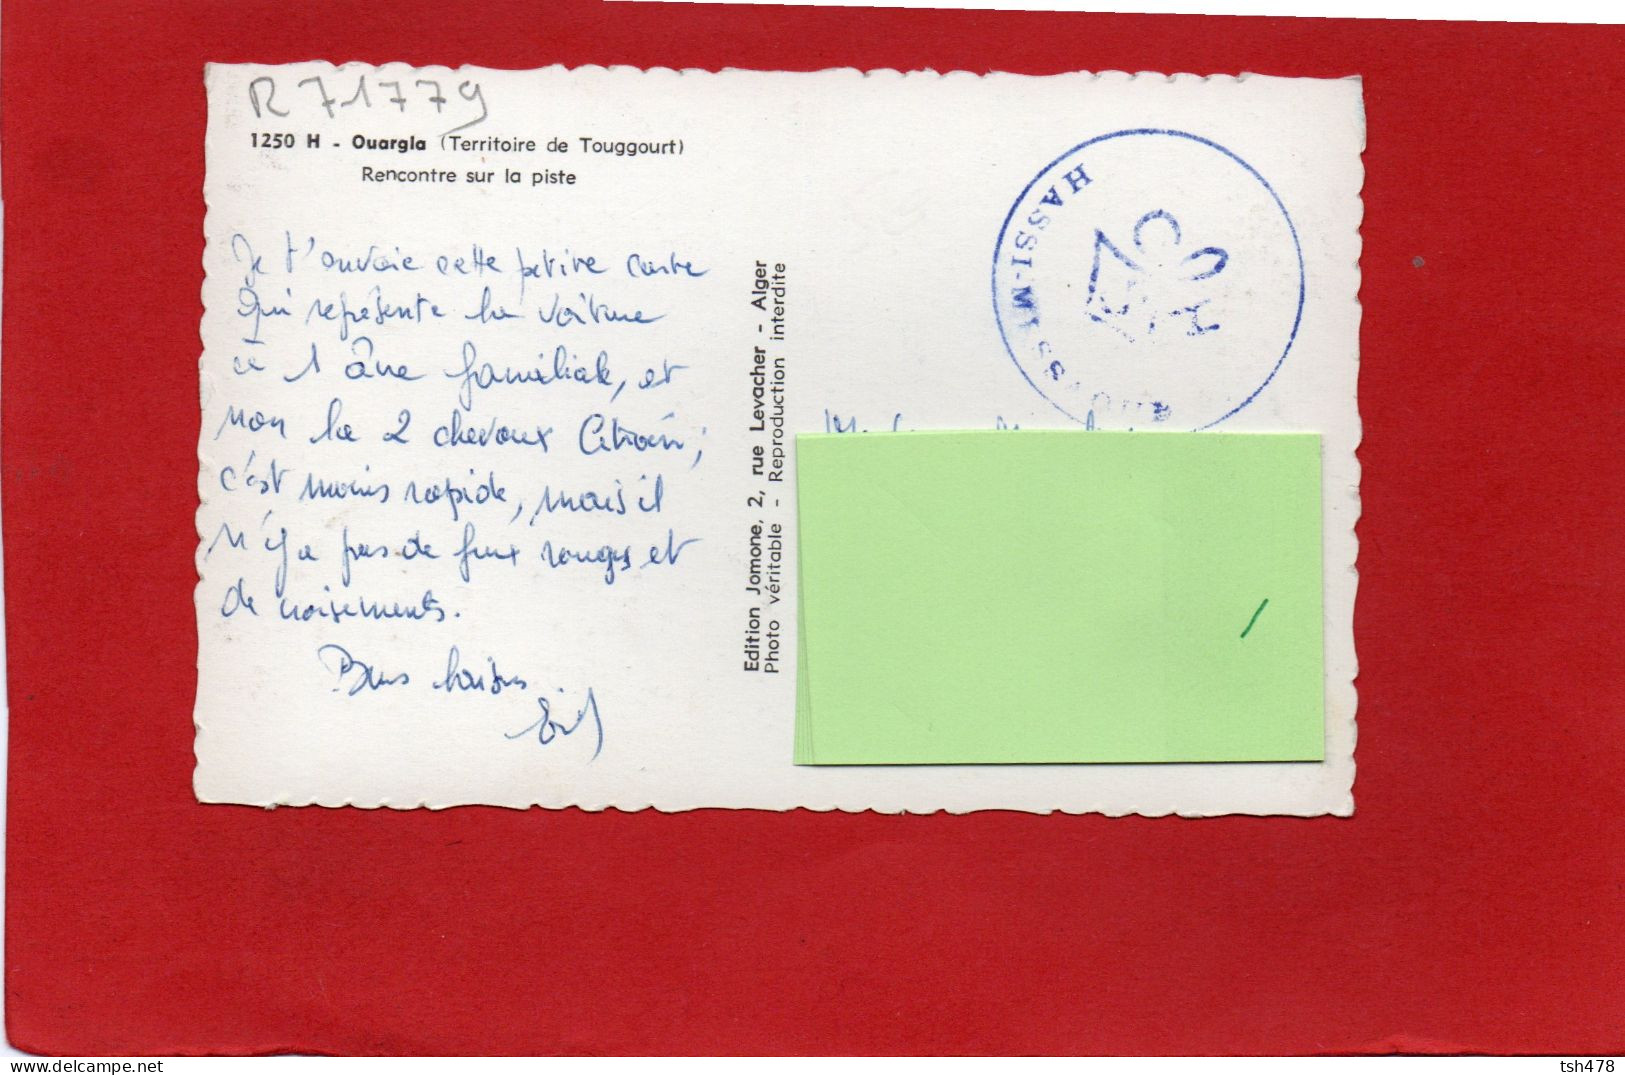 R 71779
1250 H - Ouargla (Territoire de Touggourt)
Rencontre sur la piste
Je t'envoie cette petite carte
qui représente la voiture
à 1 âne familiale, et
non la 2 chevaux Citroën;
c'est moins rapide, mais il
n'y a pas de feux rouges et
de croisements.
Bons baisers
Edition Jomone, 2, rue Levacher - Alger
Photo véritable - Reproduction interdite
HASSI-MESSAOUD
tsh478